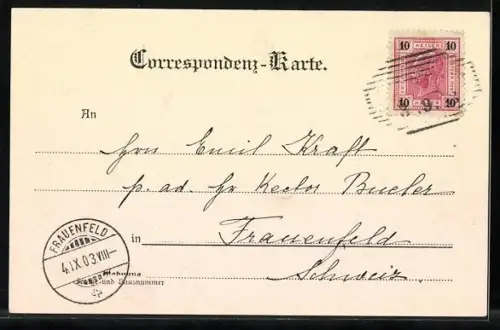 Correspondenz-Karte.
10 HELLER 10
10 10
3 9
An
Hrn Emil Kraft
p. ad. Hr Rector Bucher
in Frauenfeld
Schweiz
FRAUENFELD
4.IX.03.VIII—
Wohnung
Straße und Hausnummer